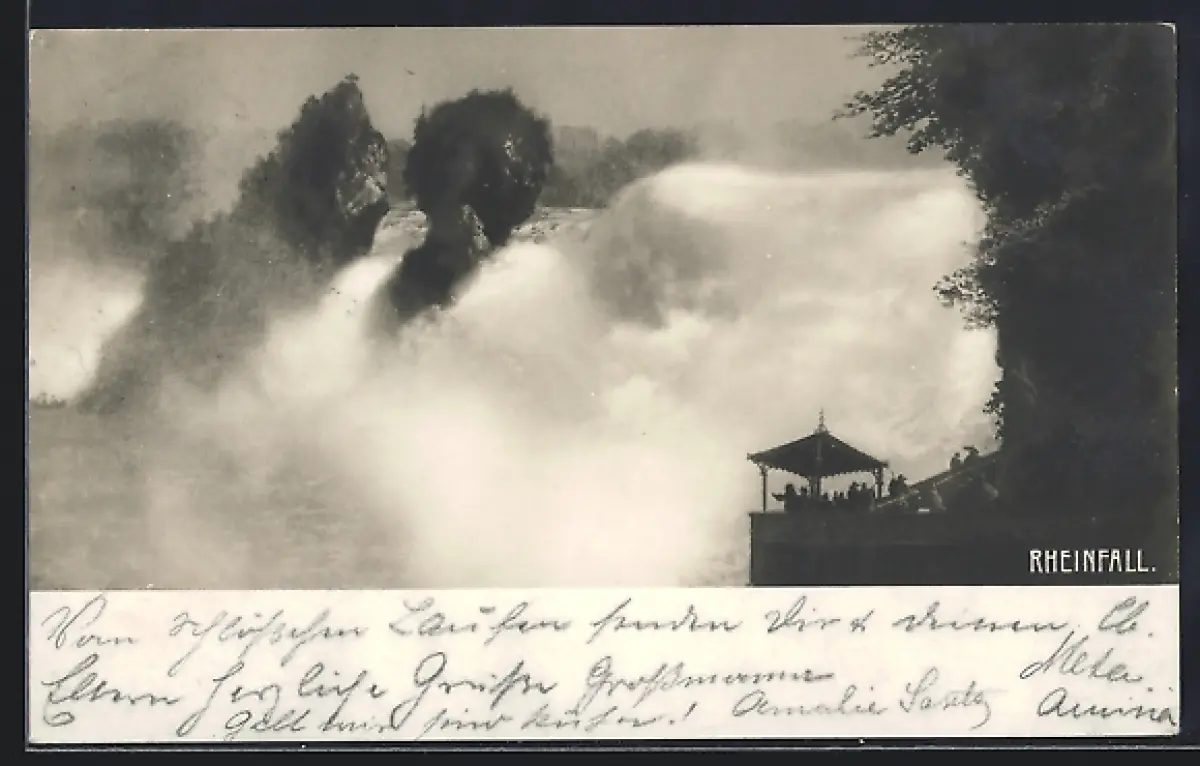 RHEINFALL.
Von Schlößchen Laufen senden Dir & deinen lb.
Eltern herzliche Grüße Großmama Meta
Gell wir sind Amalie Anna